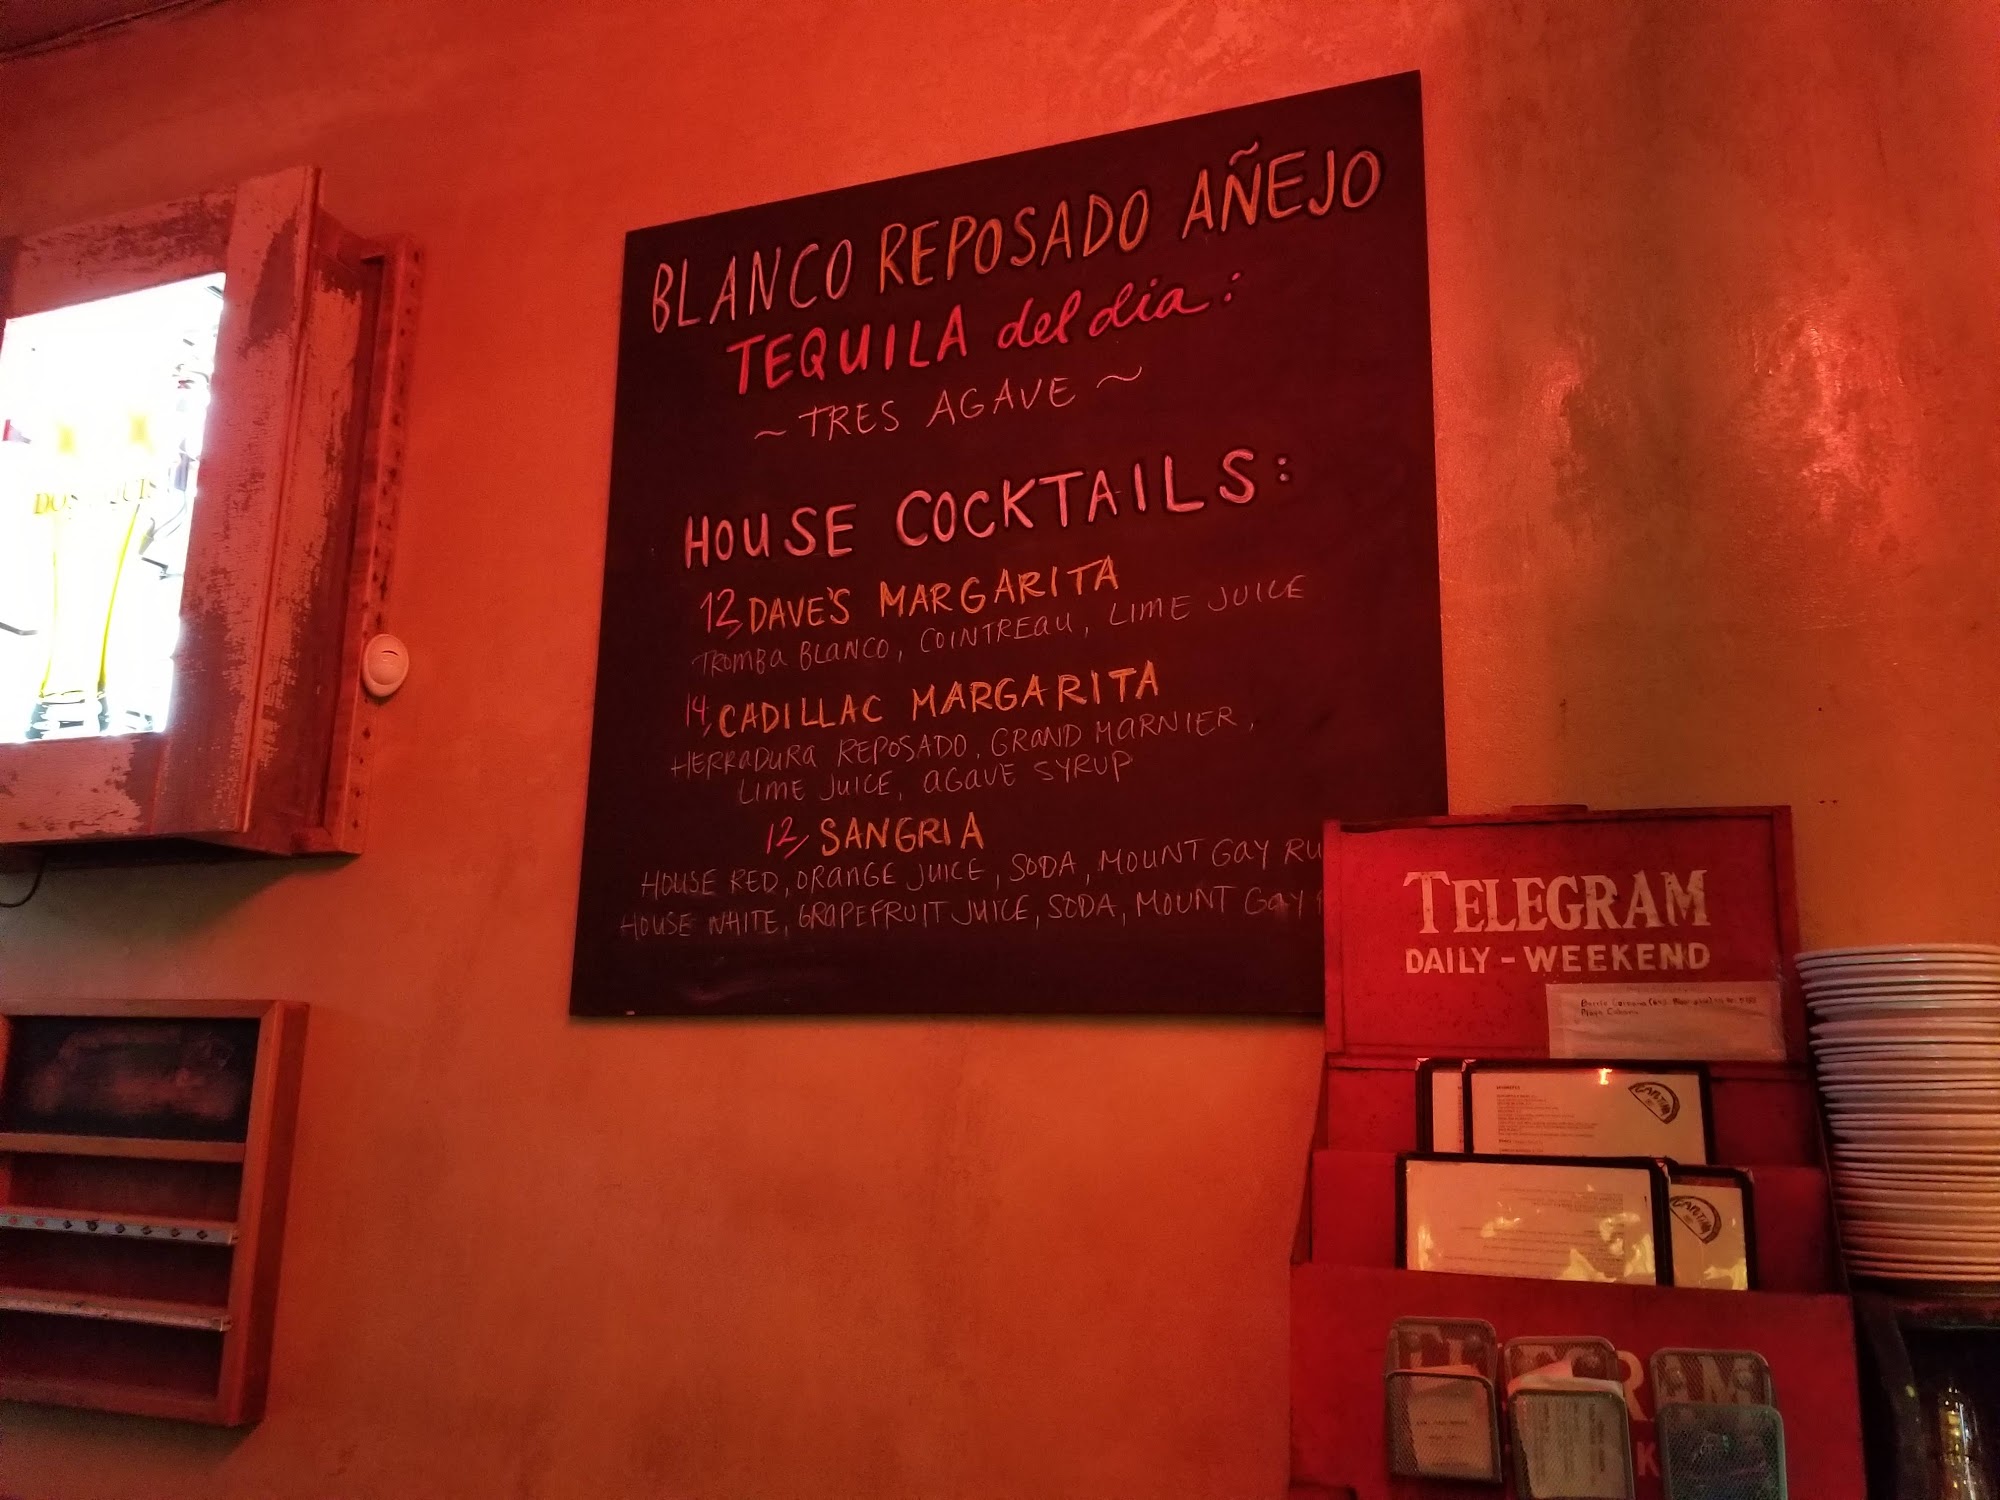 BLANCO REPOSADO AÑEJO
TEQUILA del dia:
~ TRES AGAVE ~
HOUSE COCKTAILS:
12, DAVE'S MARGARITA
TROMBA BLANCO, COINTREAU, LIME JUICE
14, CADILLAC MARGARITA
HERRADURA REPOSADO, GRAND MARNIER,
LIME JUICE, AGAVE SYRUP
12, SANGRIA
HOUSE RED, ORANGE JUICE, SODA, MOUNT GAY RU
HOUSE WHITE, GRAPEFRUIT JUICE, SODA, MOUNT GAY
TELEGRAM
DAILY - WEEKEND